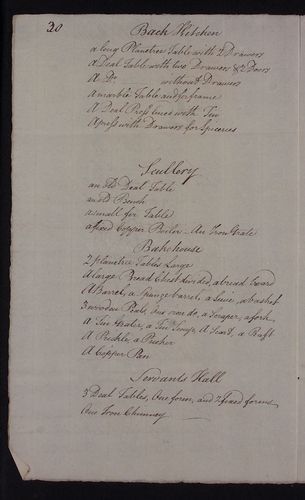 20
Back Kitchen
a long Planetree Table with 2 Drawers
a Deal Table with two Drawers & 2 Doors
A Do without Drawers
a marble Table and fir frame
A Deal Press lined with Tin
A press with Drawers for Spiceries
Scullery
an old Deal Table
an old Bench
a small fir Table
a fixed Copper Boiler - An Iron Grate
Bakehouse
2 planetree Tables Large
A large Bread Chest divided, a bread board
A Barrel, a Spunge barrel, a Sieve, a basket
3 wooden Peals, one iron do, a scraper, a fork
A Tin Grater, a Tin Lamp, A
A Prickle, a Pusher
A Copper Pan
Servants Hall
3 Deal Tables, One form, and 2 fixed forms
One Iron Chimney